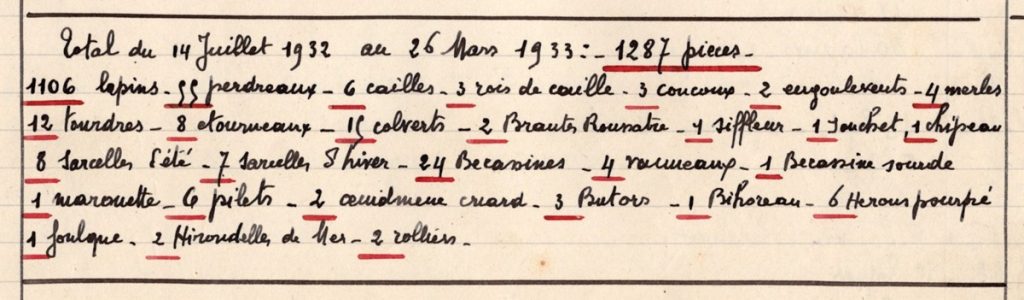 Total du 14 Juillet 1932 au 26 Mars 1933:- 1287 pieces-
1106 lapins- 55 perdreaux- 6 cailles- 3 rois de caille- 3 coucoux- 2 engoulevents- 4 merles
12 tourdres- 8 etourneaux- 15 colverts- 2 Brantes Roussatre- 1 siffleur- 1 Souchet, 1 chipeau
8 Sarcelles d'été- 7 Sarcelles d'hiver- 24 Becassines- 4 vanneaux- 1 Becassine sourde
1 marouette- 6 pilets- 2 criard- 3 Butors- 1 Bihoreau- 6 Herons pourpré
1 foulque- 2 Hirondelles de Mer- 2 rolliers-